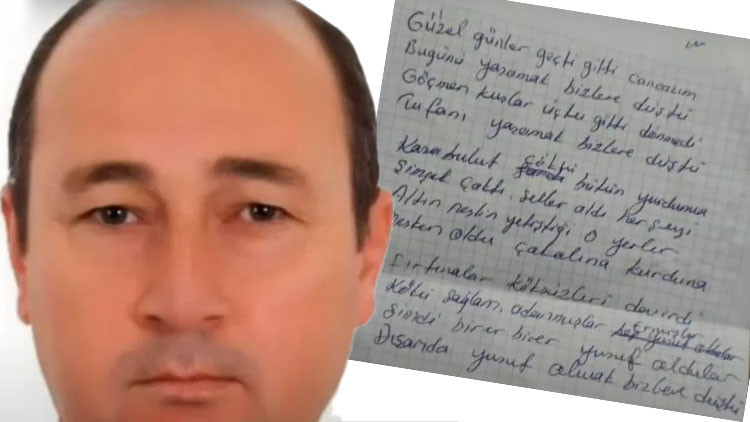 Güzel günler geçti gitti cancazım
Bugünü yaşamak bizlere düştü
Göçmen kuşlar uçtu gitti dönmedi
Tufanı yaşamak bizlere düştü
Karabulut çöktü bütün yurduma
Şimşek çaktı, seller aldı her şeyi
Altın neslin yetiştiği o yerler
mesken oldu çakalına kurduna
Fırtınalar köksüzleri devirdi
Kökü sağlam, adanmışlar
Şimdi birer birer yusuf oldular
Dışarıda yusuf olmak bizlere düştü